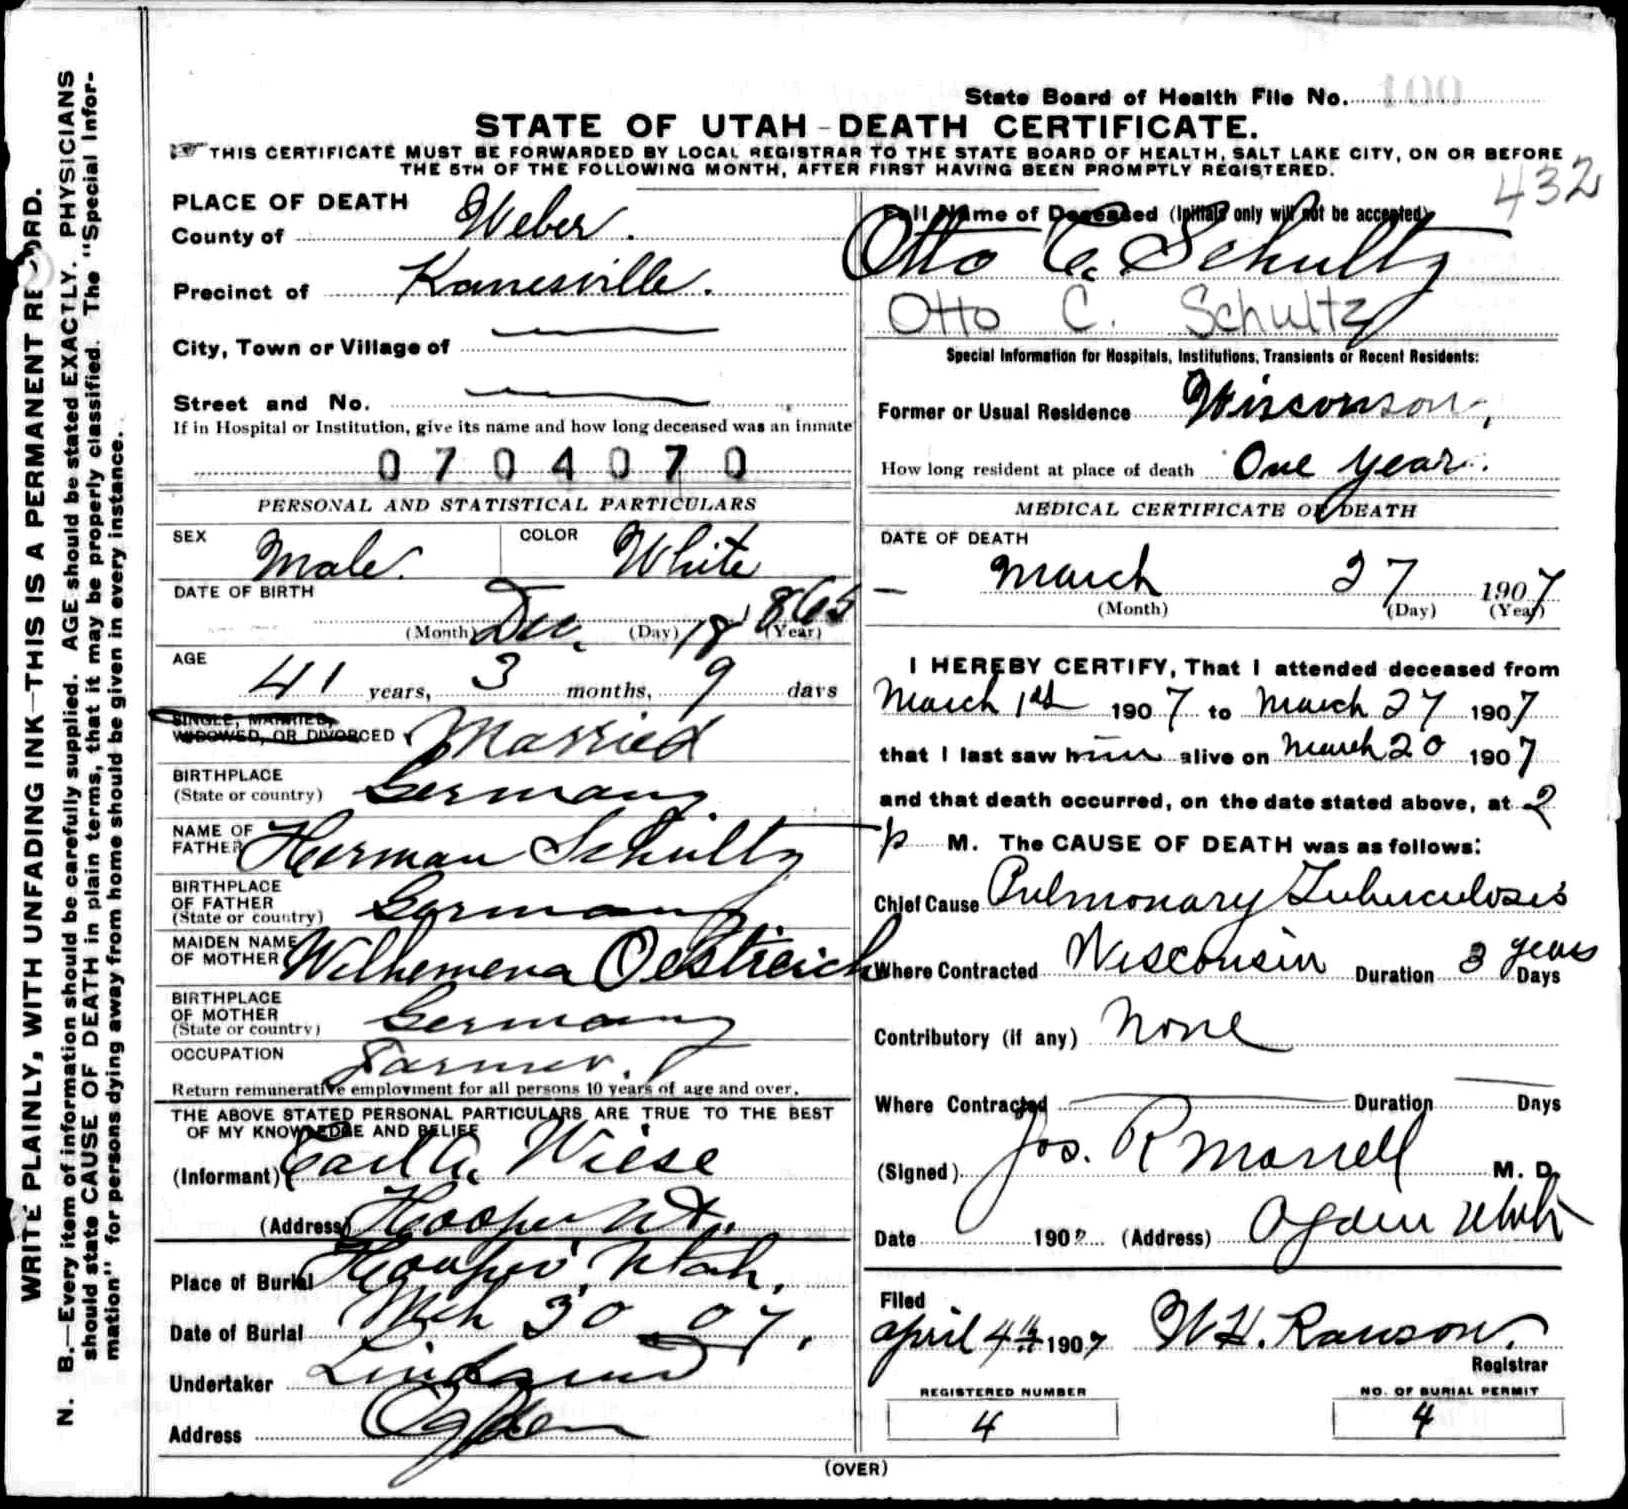 State Board of Health File No. 100
STATE OF UTAH - DEATH CERTIFICATE.
THIS CERTIFICATE MUST BE FORWARDED BY LOCAL REGISTRAR TO THE STATE BOARD OF HEALTH, SALT LAKE CITY, ON OR BEFORE
THE 5TH OF THE FOLLOWING MONTH, AFTER FIRST HAVING BEEN PROMPTLY REGISTERED.
432
WRITE PLAINLY, WITH UNFADING INK—THIS IS A PERMANENT RECORD.
N. B.—Every item of information should be carefully supplied. AGE should be stated EXACTLY. PHYSICIANS
should state CAUSE OF DEATH in plain terms, that it may be properly classified. The "Special Infor-
mation" for persons dying away from home should be given in every instance.
PLACE OF DEATH
County of Weber.
Precinct of Kanesville.
City, Town or Village of
Street and No.
If in Hospital or Institution, give its name and how long deceased was an inmate
0704070
PERSONAL AND STATISTICAL PARTICULARS
SEX Male. COLOR White
DATE OF BIRTH
(Month) Dec. (Day) 18 1865 (Year)
AGE
41 years, 3 months, 9 days
SINGLE, MARRIED,
WIDOWED, OR DIVORCED Married
BIRTHPLACE
(State or country) Germany
NAME OF
FATHER Herman Schultz
BIRTHPLACE
OF FATHER
(State or country) Germany
MAIDEN NAME
OF MOTHER Wilhemena Oestreich
BIRTHPLACE
OF MOTHER
(State or country) Germany
OCCUPATION Farmer.
Return remunerative employment for all persons 10 years of age and over.
THE ABOVE STATED PERSONAL PARTICULARS ARE TRUE TO THE BEST
OF MY KNOWLEDGE AND BELIEF
(Informant) Carl A. Wiese
(Address) Hooper Ut.
Place of Burial Hooper, Utah.
Date of Burial Mch 30 07.
Undertaker Lindquist
Address Ogden
Full Name of Deceased (Initials only will not be accepted)
Otto C. Schultz
Otto C. Schultz
Special Information for Hospitals, Institutions, Transients or Recent Residents:
Former or Usual Residence Wisconson,
How long resident at place of death One year.
MEDICAL CERTIFICATE OF DEATH
DATE OF DEATH
March 27 1907
(Month) (Day) (Year)
I HEREBY CERTIFY, That I attended deceased from
March 1st 1907 to March 27 1907
that I last saw him alive on March 20 1907
and that death occurred, on the date stated above, at 2
p M. The CAUSE OF DEATH was as follows:
Chief Cause Pulmonary Tuberculosis
Where Contracted Wisconsin Duration 3 years Days
Contributory (if any) None
Where Contracted Duration Days
(Signed) Jos. R Morrell M. D.
Date 190 (Address) Ogden Utah
Filed
April 4th 1907 W H. Ranson.
Registrar
REGISTERED NUMBER NO. OF BURIAL PERMIT
4 4
(OVER)